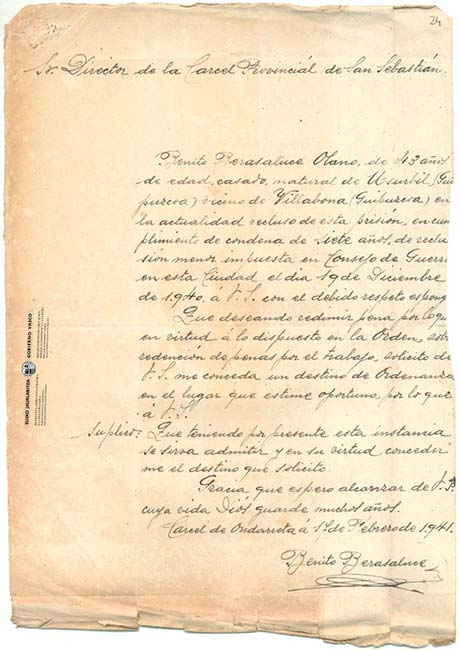 24
Sr. Director de la Carcel Provinciál de San Sebastián.
Benito Berasaluce Olano, de 43 años
de edad, casado, natural de Usurbil (Gui
puzcoa) vicino de Villabona (Guipuzcoa) en
la actualidad recluso de esta prisión, en cum
plimiento de condena de siete años, de reclu
sión menor impuesta en Consejo de Guerra
en esta Ciudad el dia 19 de Diciembre
de 1.940, á V.S. con el debido respeto espong
Que deseando redimir pena por lo que
en virtud á lo dispuesto en la Orden, sobre
redención de penas por el trabajo, solicito de
V.S. me conceda un destino de Ordenanza
en el lugar que estime oportuno, por lo que
á V.S.
Suplico: Que teniendo por presente esta instancia
se sirva admitir y en su virtud, conceder
me el destino que solicito.
Gracia que espero alcanzar de V.S.
cuya vida Diós guarde muchos años.
Carcel de Ondarreta á de Febrero de 1.941.
Benito Berasaluce
EUSKO JAURLARITZA GOBIERNO VASCO